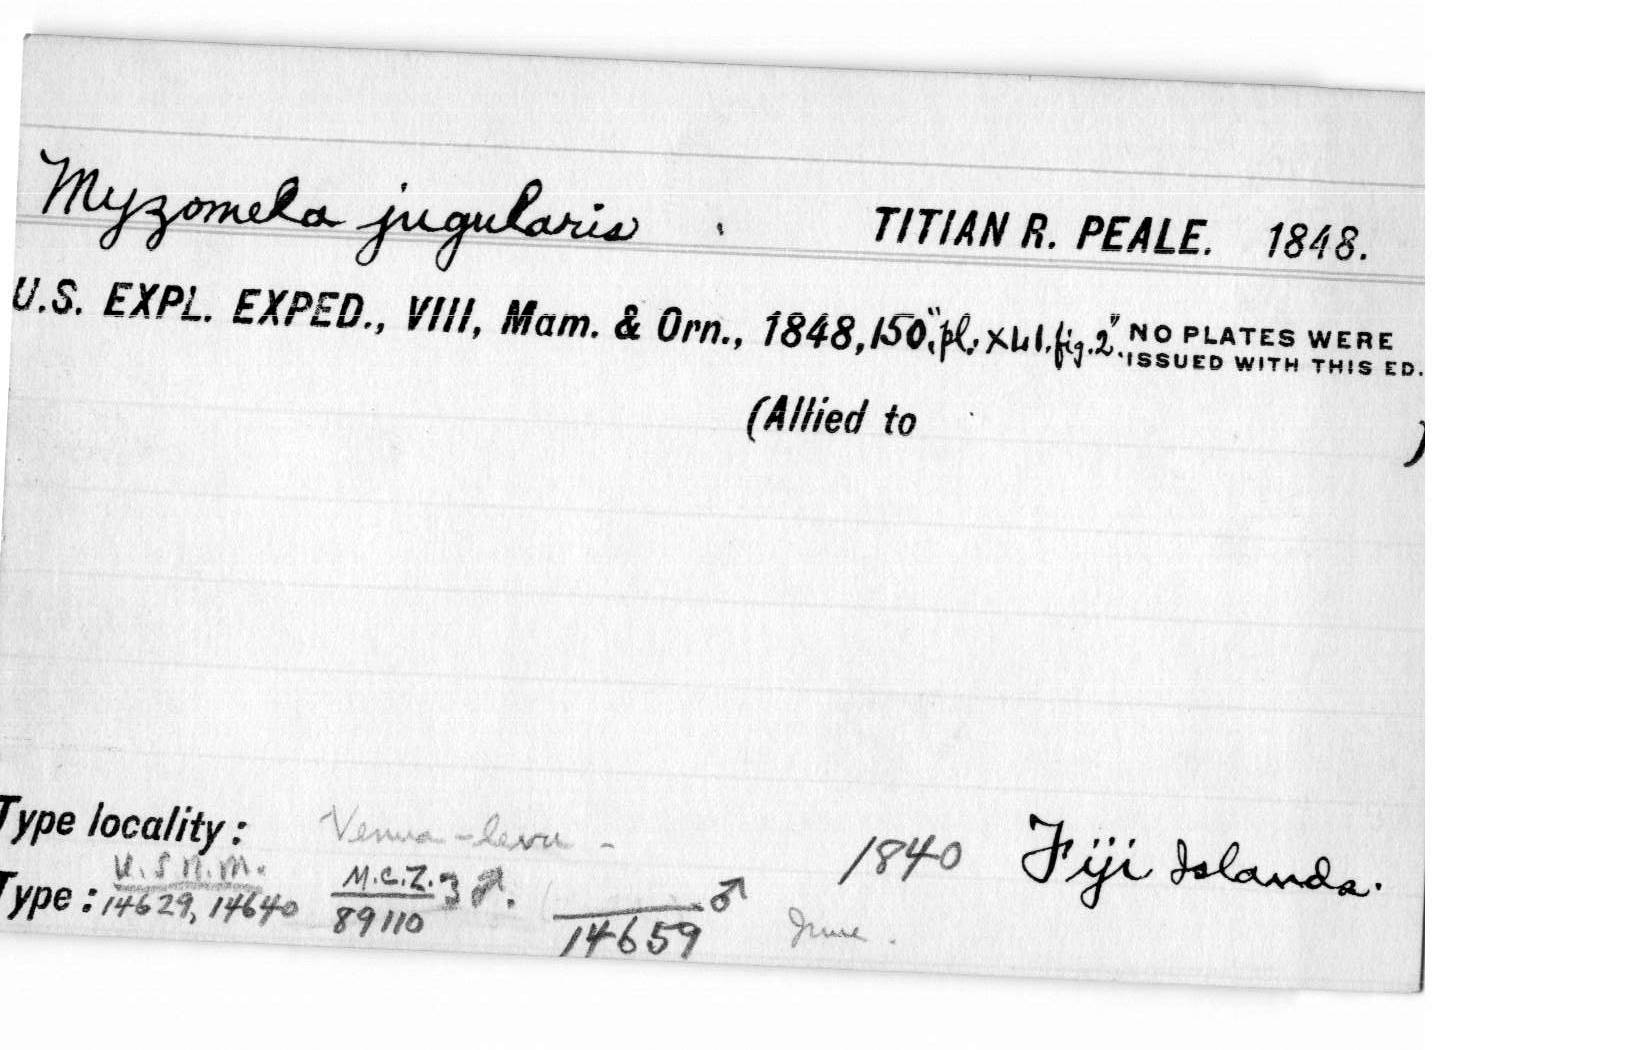 Myzomela jugularis . TITIAN R. PEALE. 1848.
U.S. EXPL. EXPED., VIII, Mam. & Orn., 1848, 150, "pl. xli. fig. 2." NO PLATES WERE
ISSUED WITH THIS ED.
(Allied to )
Type locality: Venua-levu - 1840 Fiji Islands.
U.S.N.M. M.C.Z.
Type: 14629, 14640 89110 ♂ 14659 June.